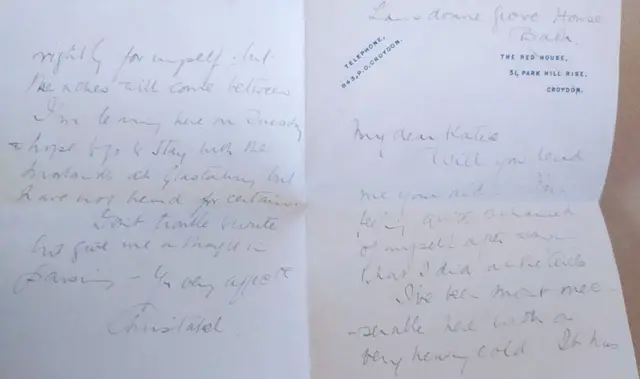 Lansdowne Grove House
Bath.
TELEPHONE,
P.O. CROYDON.
THE RED HOUSE,
51, PARK HILL RISE,
CROYDON.
My dear Katie
Will you lend
me your
being quite ashamed
of myself after
what I did at the
I've been most mee
-serable here with a
very heavy cold It has
rightly for myself but
the aches will come between
I'm leaving here on Tuesday
& hope to go to stay with the
at Glastonbury but
have not heard for certain
Don't trouble to write
but give me a thought in
passing – Yr very affecte